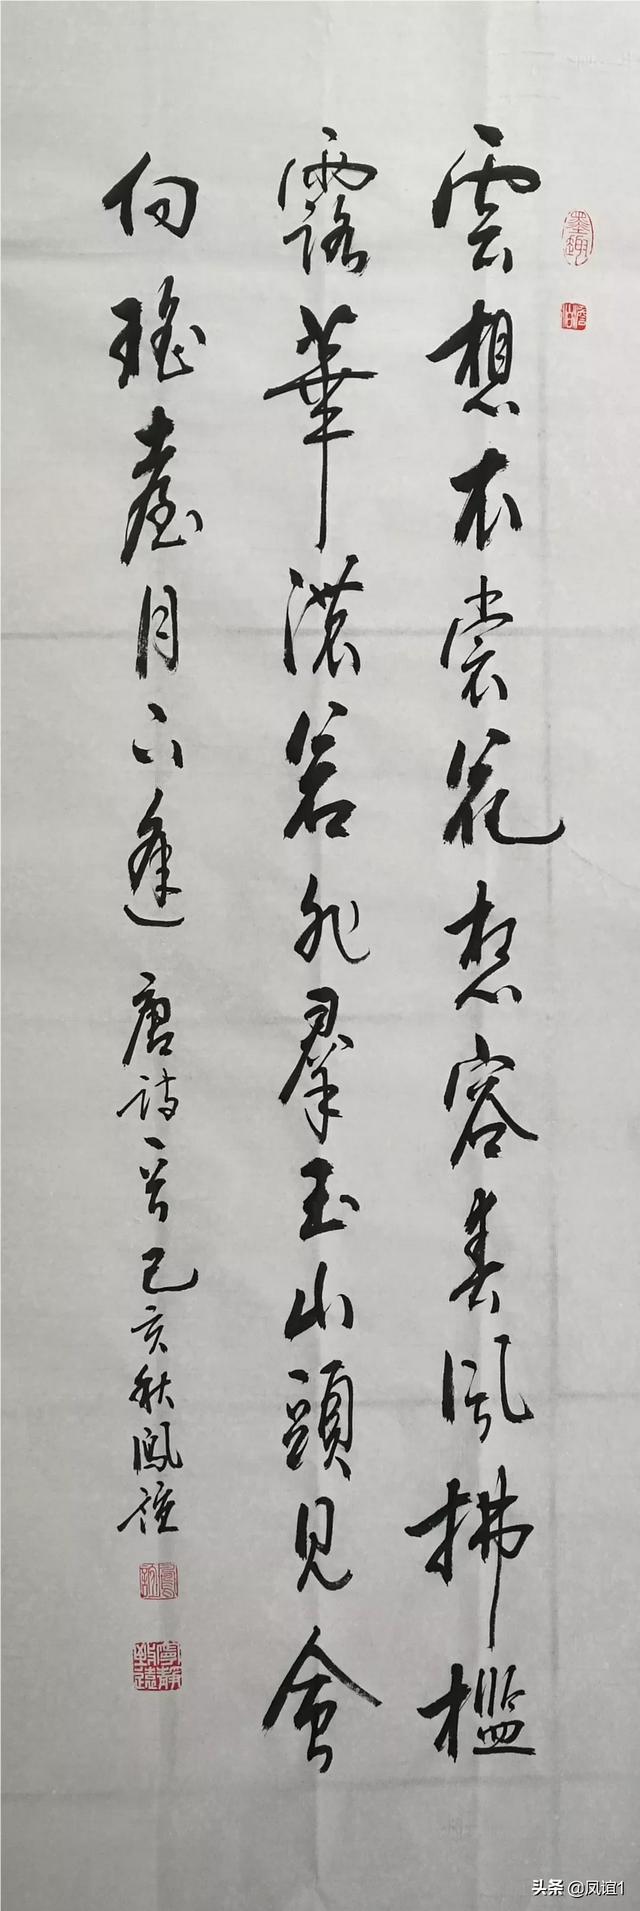 雲想衣裳花想容春風拂檻
露華濃若非羣玉山頭見會
向瑤臺月下逢 唐詩一首己亥秋鳳誼
墨趣
鳳誼
寧靜致遠
头条 @凤谊1